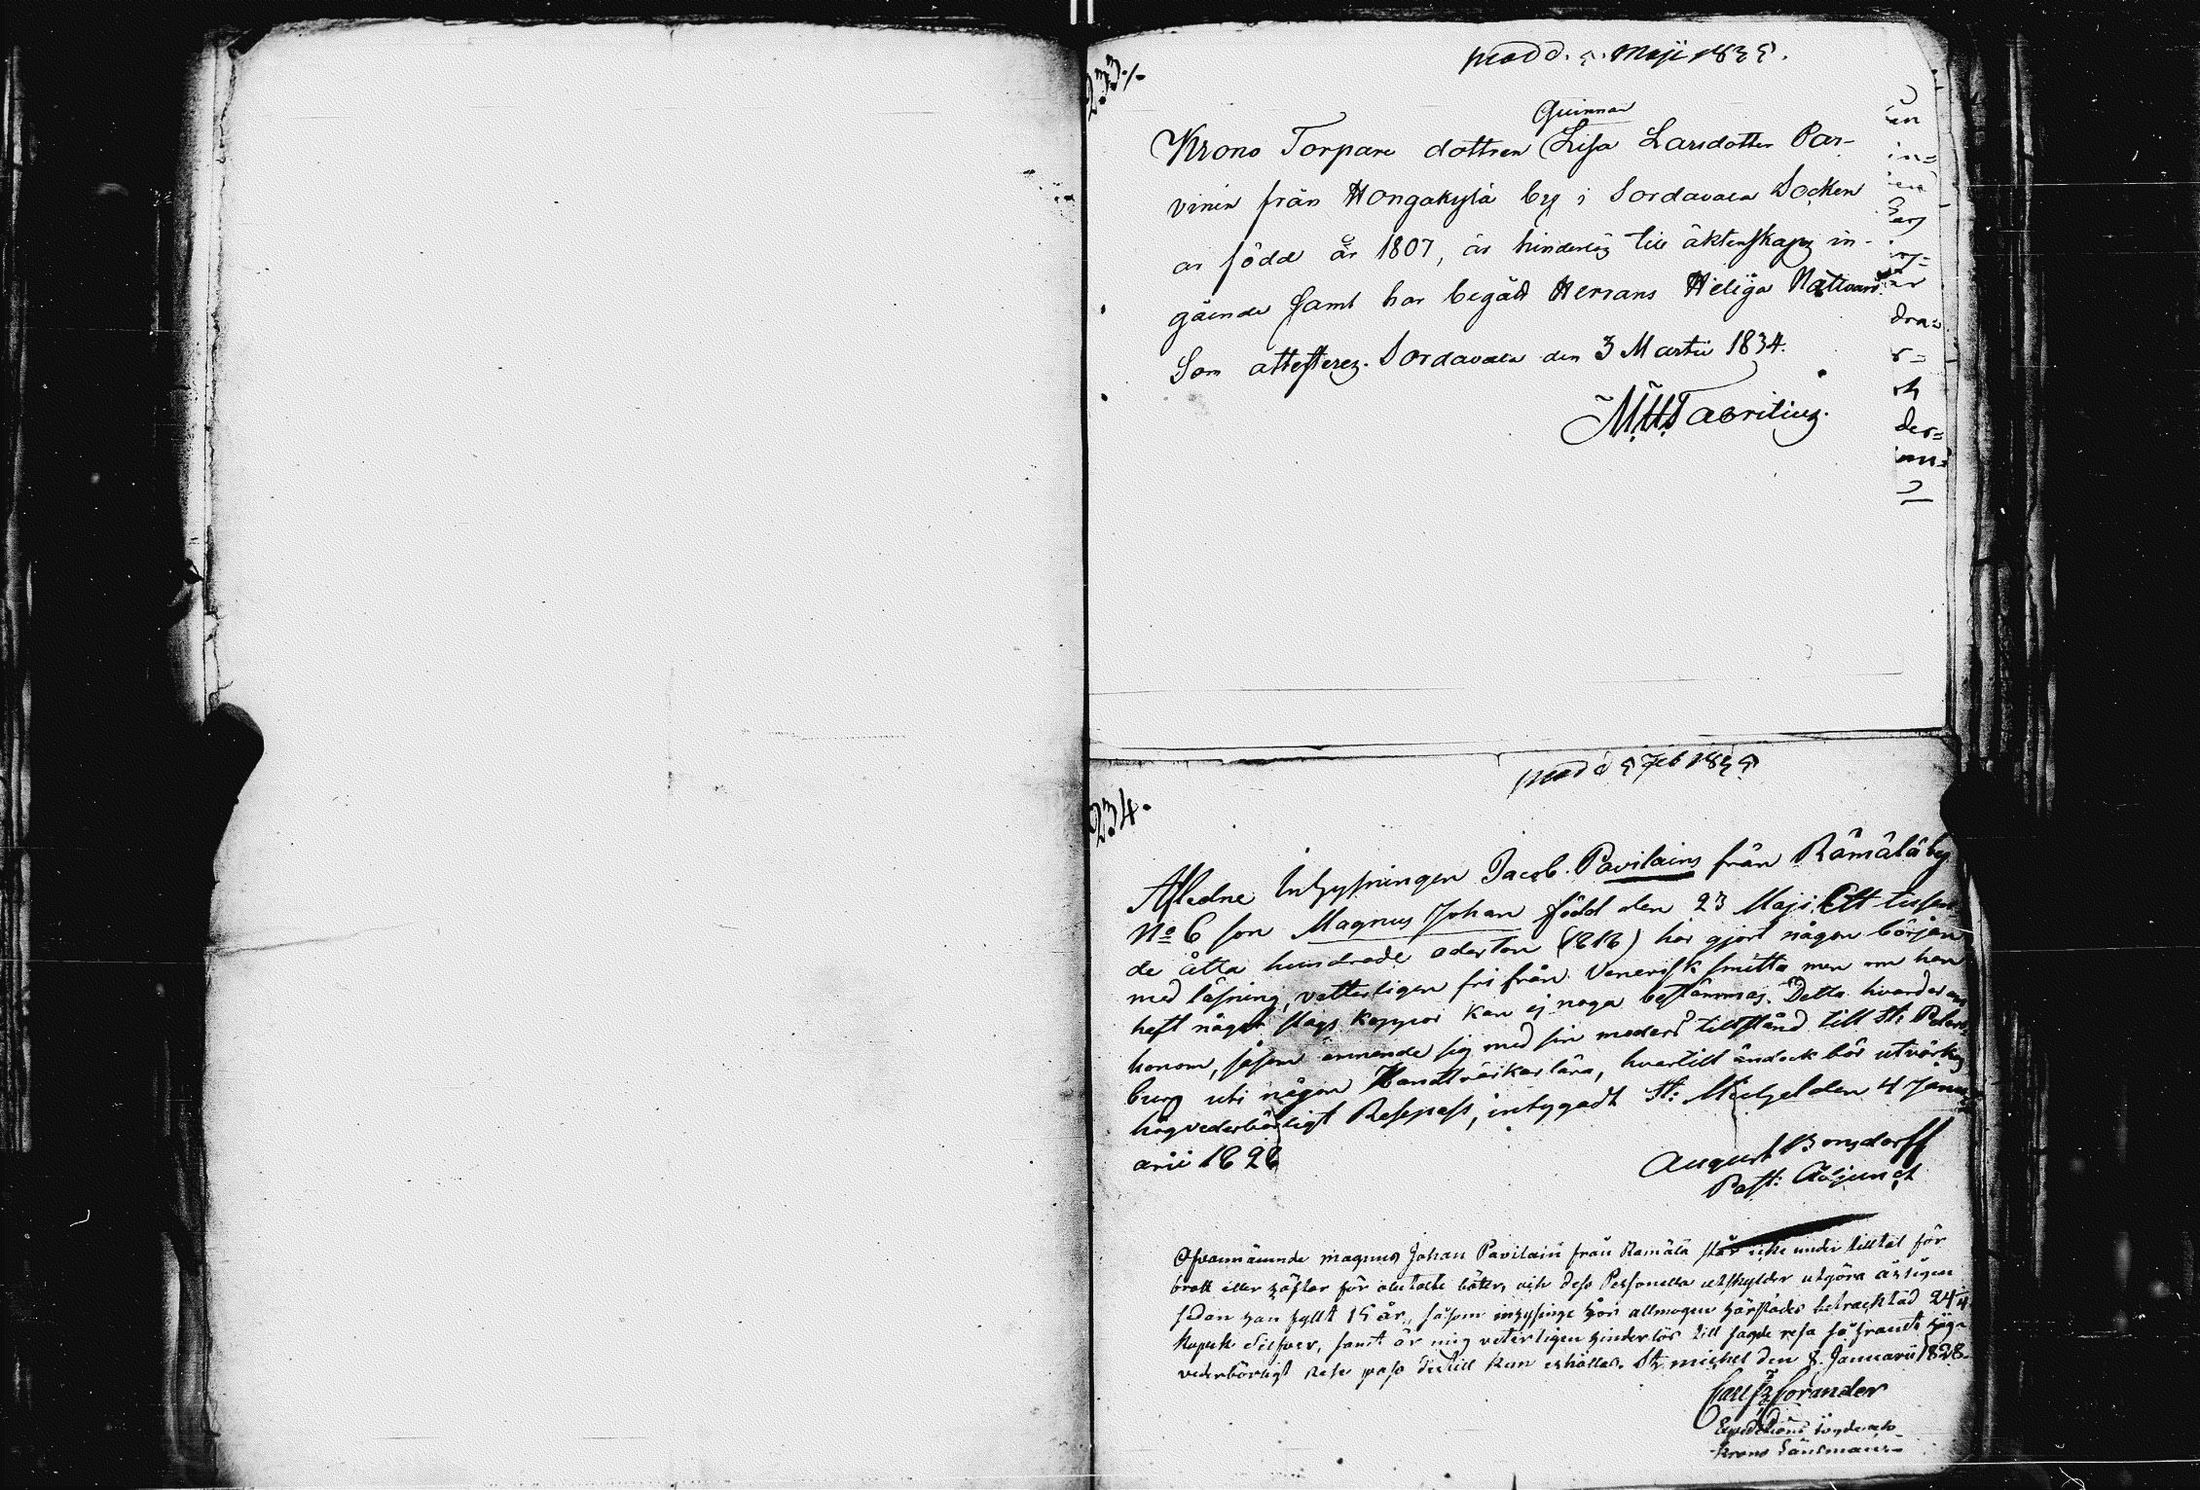 233.
prod d. 5 Maji 1835.
Quinnan
Krono Torpare dottren Lisa Larsdotter Par-
vinen från Hongakylä by i Sordavala Socken
är född år 1807, är hinderlös till äktenskaps in-
gående samt har begådt Herrans Heliga Nattvard.
Som attesteras. Sordavala den 3 Martii 1834.
Tavoritius.
234.
prod d 5 Feb 1835
Afledne Inhysningen Jacob Pavilains från Rämälä by
No 6 son Magnus Johan född den 23 Maji Ett tusen
de åtta hundrade aderton (1818) har gjort någon början
med läsning, vetterligen fri från Venerisk smitta men om han
haft något slags koppor kan ej noga bestämmas. Detta
honom, såsom ämnande sig med sin moders tillstånd till St: Peters-
burg uti någon Handtvärkar lära, hvartill ändock bör utvärkas
högvederbörligt Respass, intygadt St: Michel den 4 Janu-
arii 1828
August Borgdorff
Past: Adjunct
Ofvannämnde Magnus Johan Pavilain från Rämälä står icke under tilltal för
brott eller häftar för obetalte böter, och dess Personella utskylder utgöra årligen
sedan han fyllt 15 år, såsom inhysinge hos allmogen härstädes betracktad 24
kopek Silfver, samt är mig veterligen hinderlös till sagde resa så framt hög-
vederbörligt Rese pass dertill kan erhållas. St. Michel den 8. Januarii 1828.
Carl Forander
Expeditions
Krono Länsman